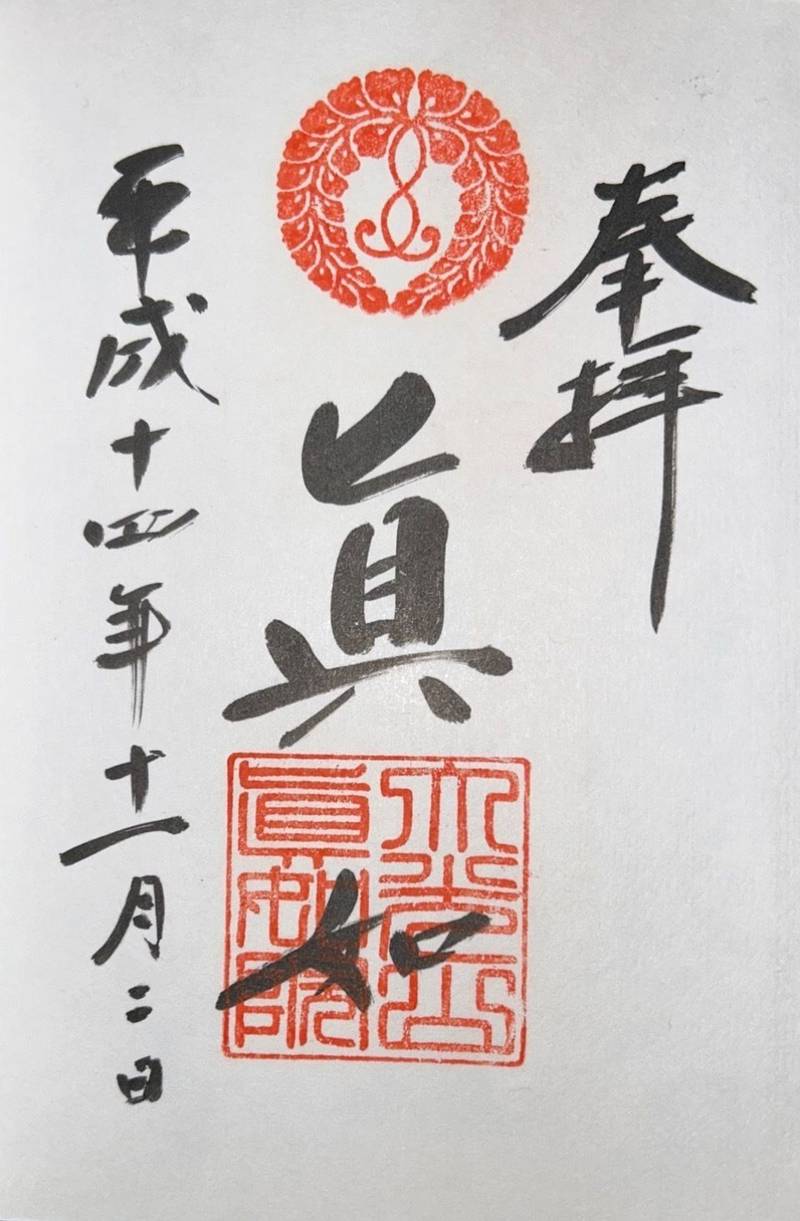 奉拝
眞如
大光山
眞如院
平成十四年十一月二日